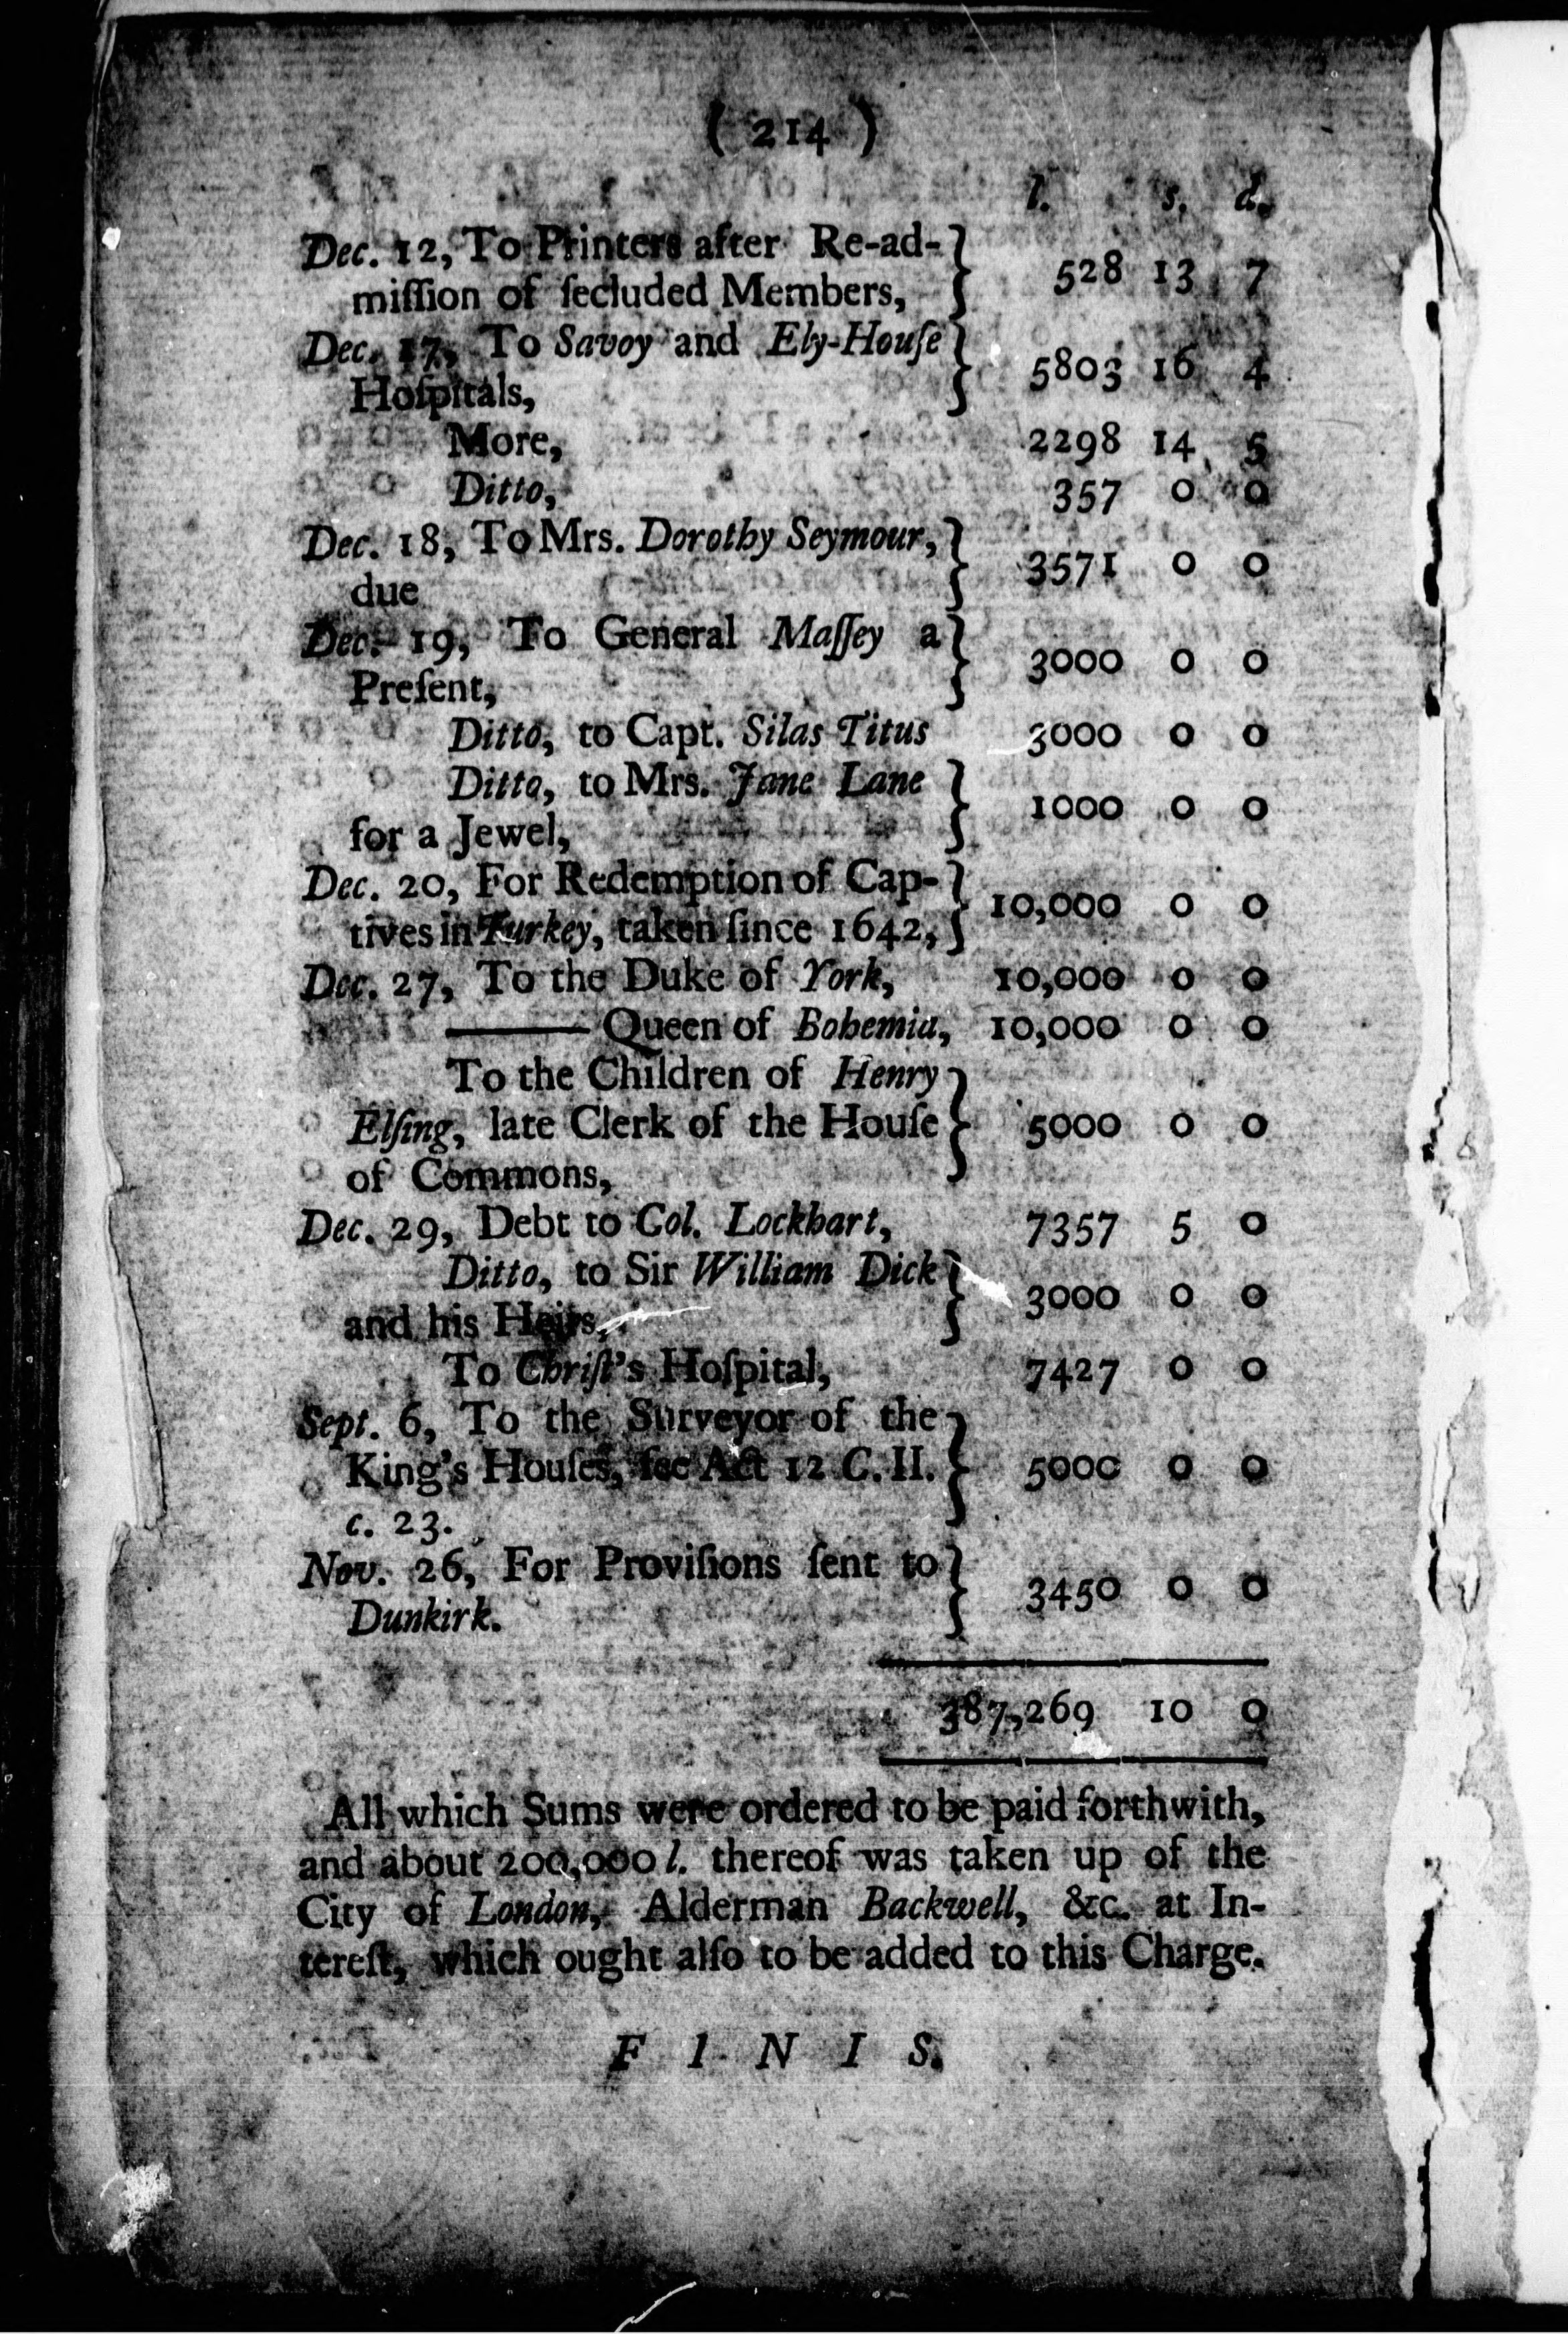 ( 214 )
l. s. d.
Dec. 12, To Printers after Re-ad-
miſſion of ſecluded Members, } 528 13 7
Dec. 17, To Savoy and Ely-Houſe
Hoſpitals, } 5803 16 4
More, 2298 14 5
Ditto, 357 0 0
Dec. 18, To Mrs. Dorothy Seymour,
due } 3571 0 0
Dec. 19, To General Maſſey a
Preſent, } 3000 0 0
Ditto, to Capt. Silas Titus 3000 0 0
Ditto, to Mrs. Jane Lane
for a Jewel, } 1000 0 0
Dec. 20, For Redemption of Cap-
tives in Turkey, taken ſince 1642, } 10,000 0 0
Dec. 27, To the Duke of York, 10,000 0 0
——— Queen of Bohemia, 10,000 0 0
To the Children of Henry
Elſing, late Clerk of the Houſe } 5000 0 0
of Commons,
Dec. 29, Debt to Col. Lockhart, 7357 5 0
Ditto, to Sir William Dick
and his Heirs, } 3000 0 0
To Chriſt's Hoſpital, 7427 0 0
Sept. 6, To the Surveyor of the
King's Houſes, ſee Act 12 C. II. } 5000 0 0
c. 23.
Nov. 26, For Proviſions ſent to
Dunkirk. } 3450 0 0
387,269 10 0
All which Sums were ordered to be paid forthwith,
and about 200,000 l. thereof was taken up of the
City of London, Alderman Backwell, &c. at In-
tereſt, which ought alſo to be added to this Charge.
F I N I S.